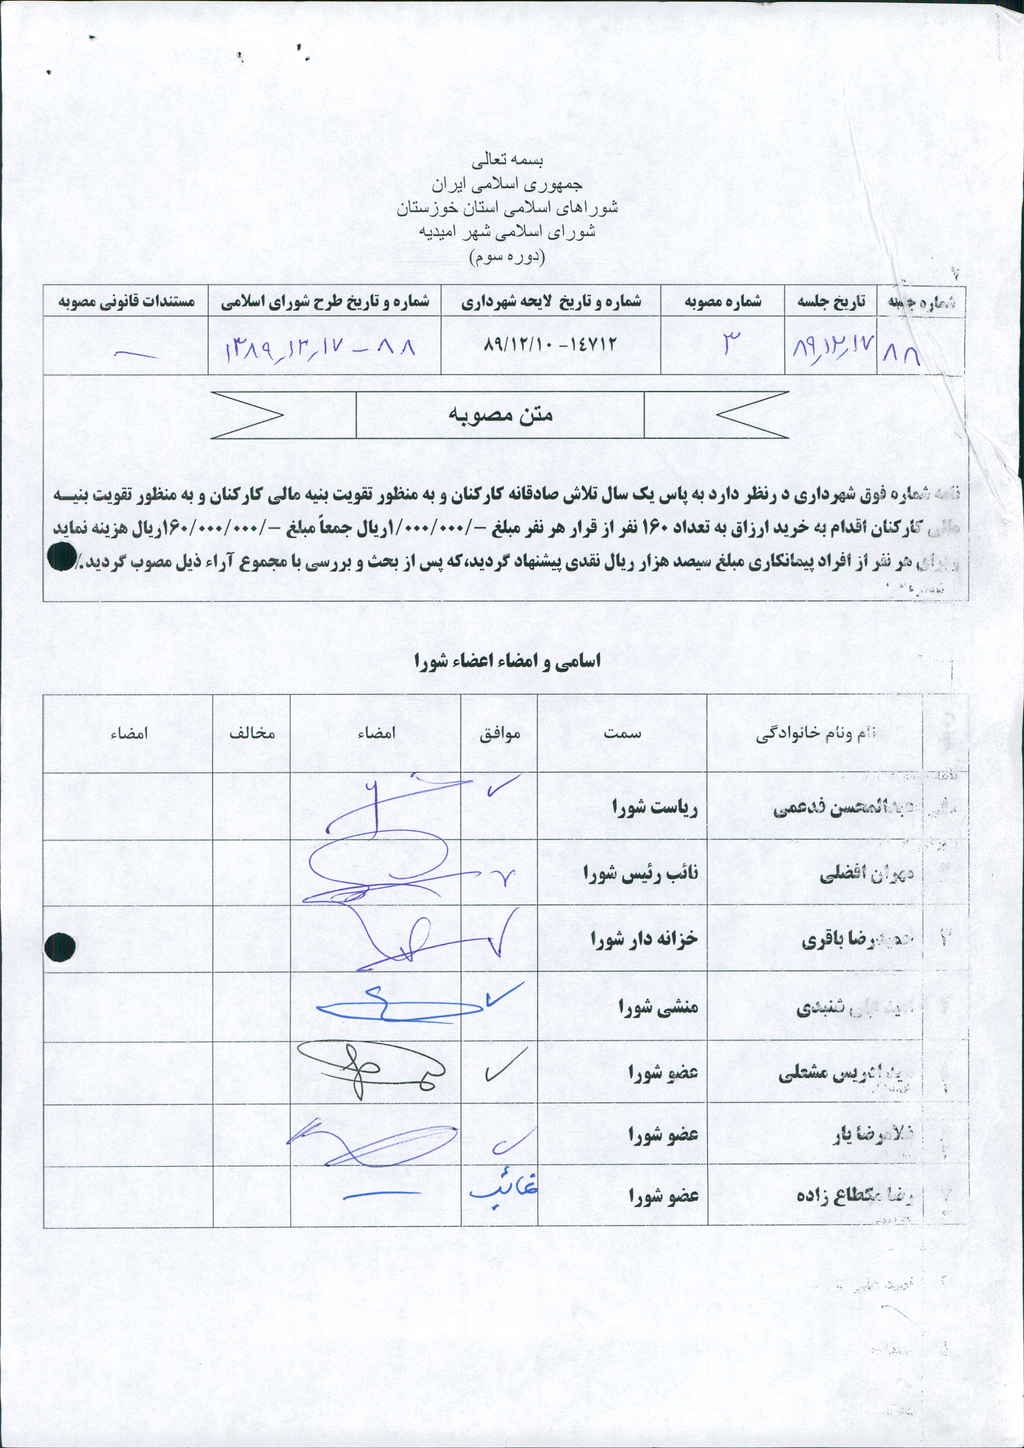 بسمه تعالی
جمهوری اسلامی ایران
شوراهای اسلامی استان خوزستان
شورای اسلامی شهر امیدیه
(دوره سوم)
شماره جلسه تاریخ جلسه شماره مصوبه شماره و تاریخ لایحه شهرداری شماره و تاریخ طرح شورای اسلامی مستندات قانونی مصوبه
۸۸ ۸۹٫۱۲٫۱۷ ۳ ۱٤۷۱۲-۸۹/۱۲/۱۰ ۸۸ - ۱۳۸۹٫۱۲٫۱۷ —
متن مصوبه
نامه شماره فوق شهرداری د رنظر دارد به پاس یک سال تلاش صادقانه کارکنان و به منظور تقویت بنیه مالی کارکنان و به منظور تقویت بنیــه
مالی کارکنان اقدام به خرید ارزاق به تعداد ۱۶۰ نفر از قرار هر نفر مبلغ -/۱/۰۰۰/۰۰۰ریال جمعاً مبلغ -/۱۶۰/۰۰۰/۰۰۰ریال هزینه نماید
و برای هر نفر از افراد پیمانکاری مبلغ سیصد هزار ریال نقدی پیشنهاد گردید،که پس از بحث و بررسی با مجموع آراء ذیل مصوب گردید.
اسامی و امضاء اعضاء شورا
نام ونام خانوادگی سمت موافق امضاء مخالف امضاء
عبدالمحسن فدعمی ریاست شورا ✓
مهران افضلی نائب رئیس شورا ✓
حمیدرضا باقری خزانه دار شورا ✓
شنبدی منشی شورا ✓
ادریس مشعلی عضو شورا ✓
غلامرضا یار عضو شورا ✓
رضا مکطاع زاده عضو شورا غائب —